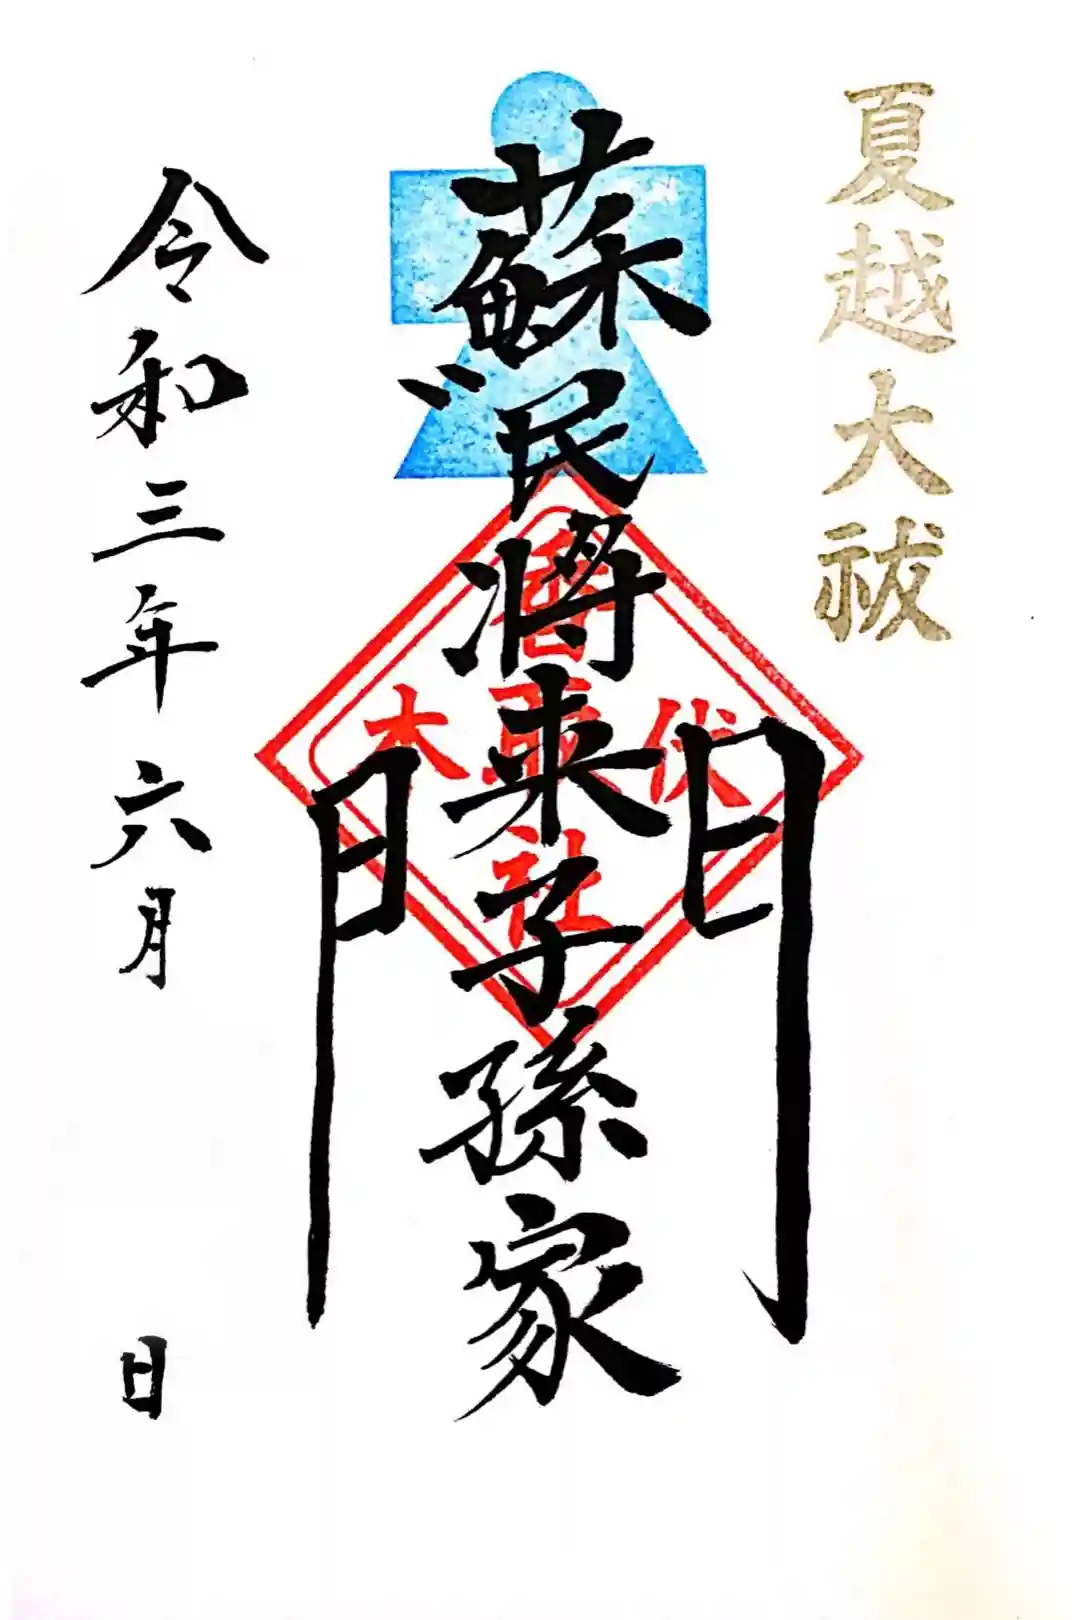 夏越大祓
蘇民将来子孫家門
伏木
社
令和三年六月　日